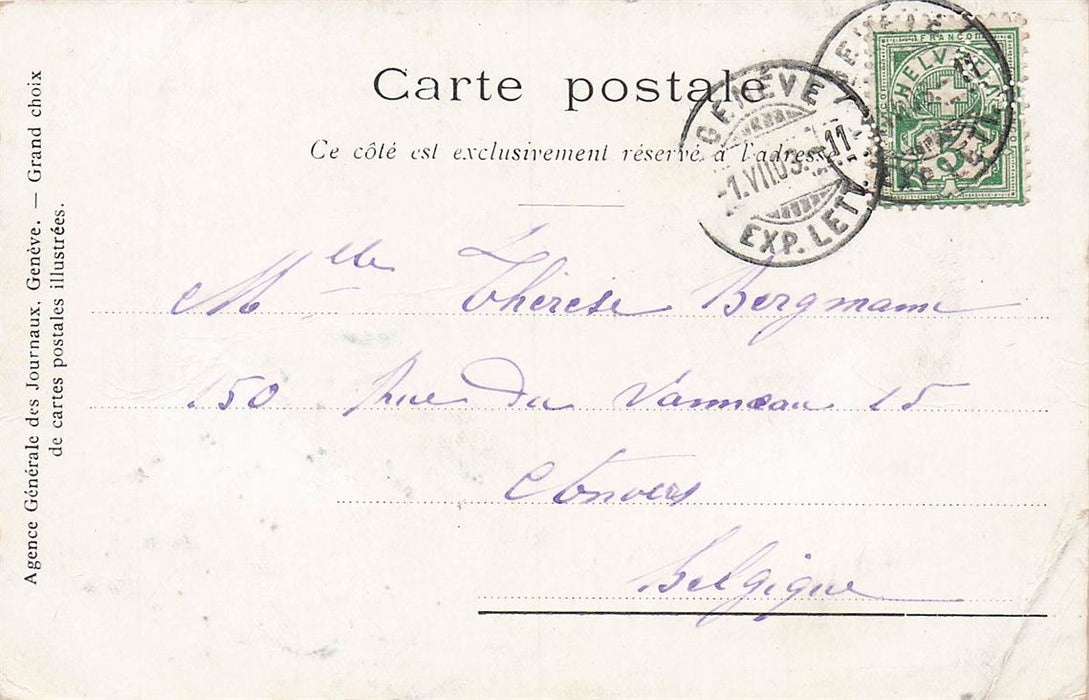 Carte postale
Ce côté est exclusivement réservé à l'adresse.
GENÈVE
-1.VII.03. 11-
EXP. LETT.
FRANCO
HELVETIA
5
Mlle Thérèse Bergmann
150 Rue du Vanneau 15
Anvers
Belgique
Agence Générale des Journaux. Genève. — Grand choix
de cartes postales illustrées.